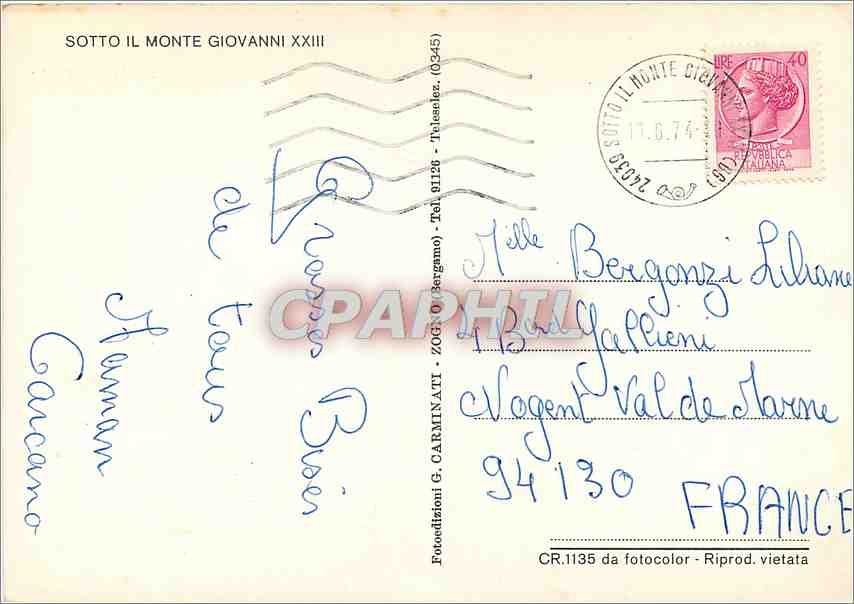 SOTTO IL MONTE GIOVANNI XXIII
Grosses Bises
de tous
Maman
Carcano
Fotoedizioni G. CARMINATI - ZOGNO (Bergamo) - Tel. 91126 - Teleselez. (0345)
24039 SOTTO IL MONTE GIOVANNI (BG)
11.6.74
LIRE 40
POSTE
REPVBBLICA
ITALIANA
Melle Bergonzi Liliane
4 Bord Gallieni
Nogent Val de Marne
94130
FRANCE
CR.1135 da fotocolor - Riprod. vietata
CPAPHIL